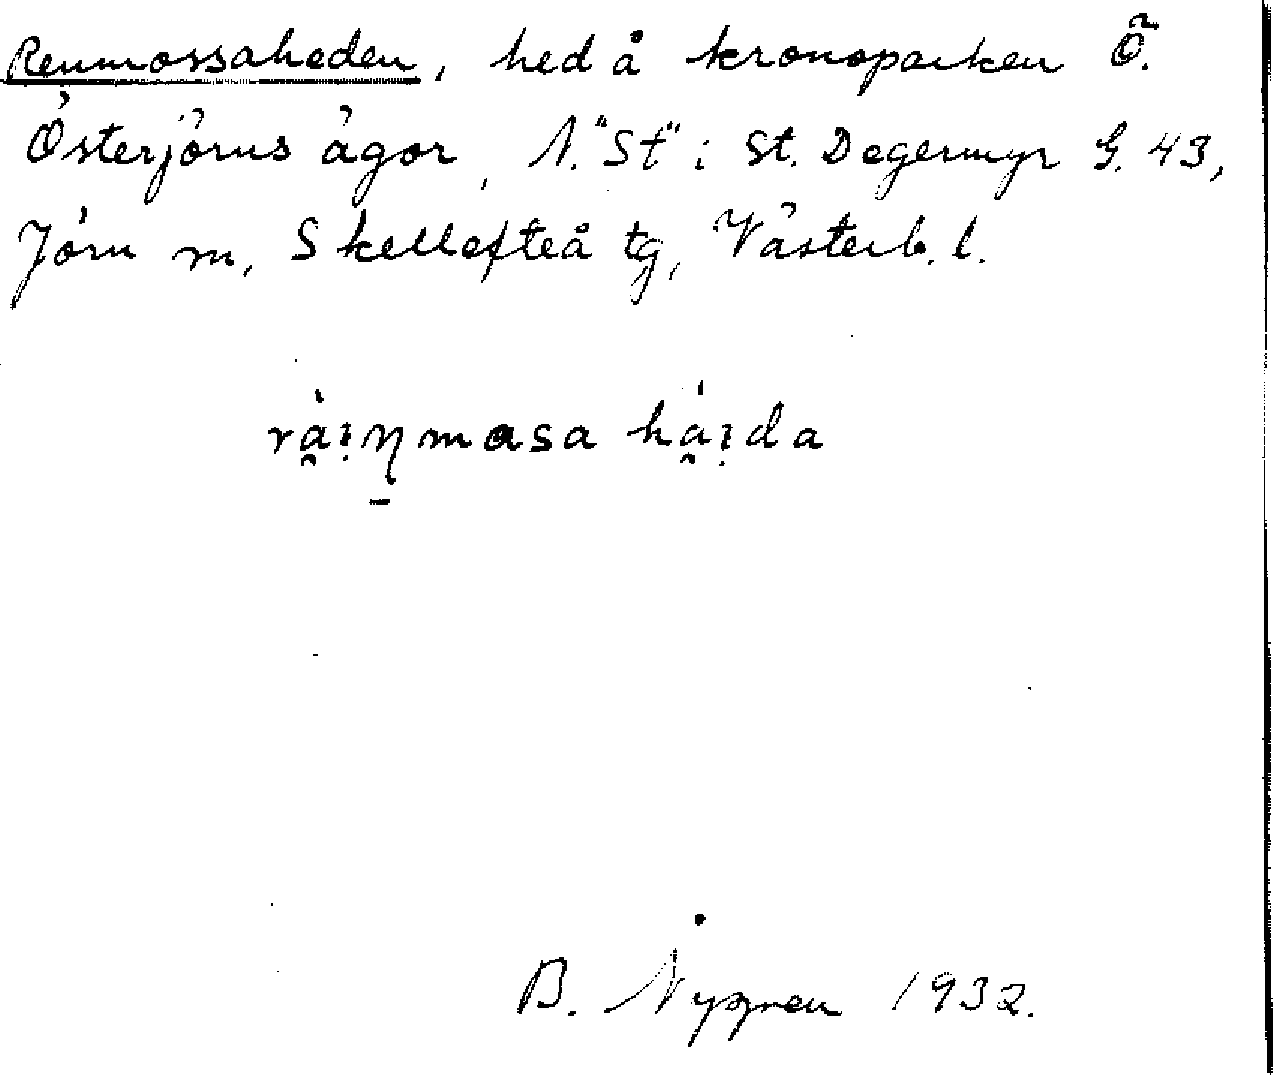 Renmossaheden, hed å kronoparken Ö.
Österjörns ägor, N. "St" i St. Degermyr G. 43,
Jörn sn, Skellefteå tg, Västerb. l.
rå̯i̯ŋmasa há̯i̯da
B. Nygren 1932.